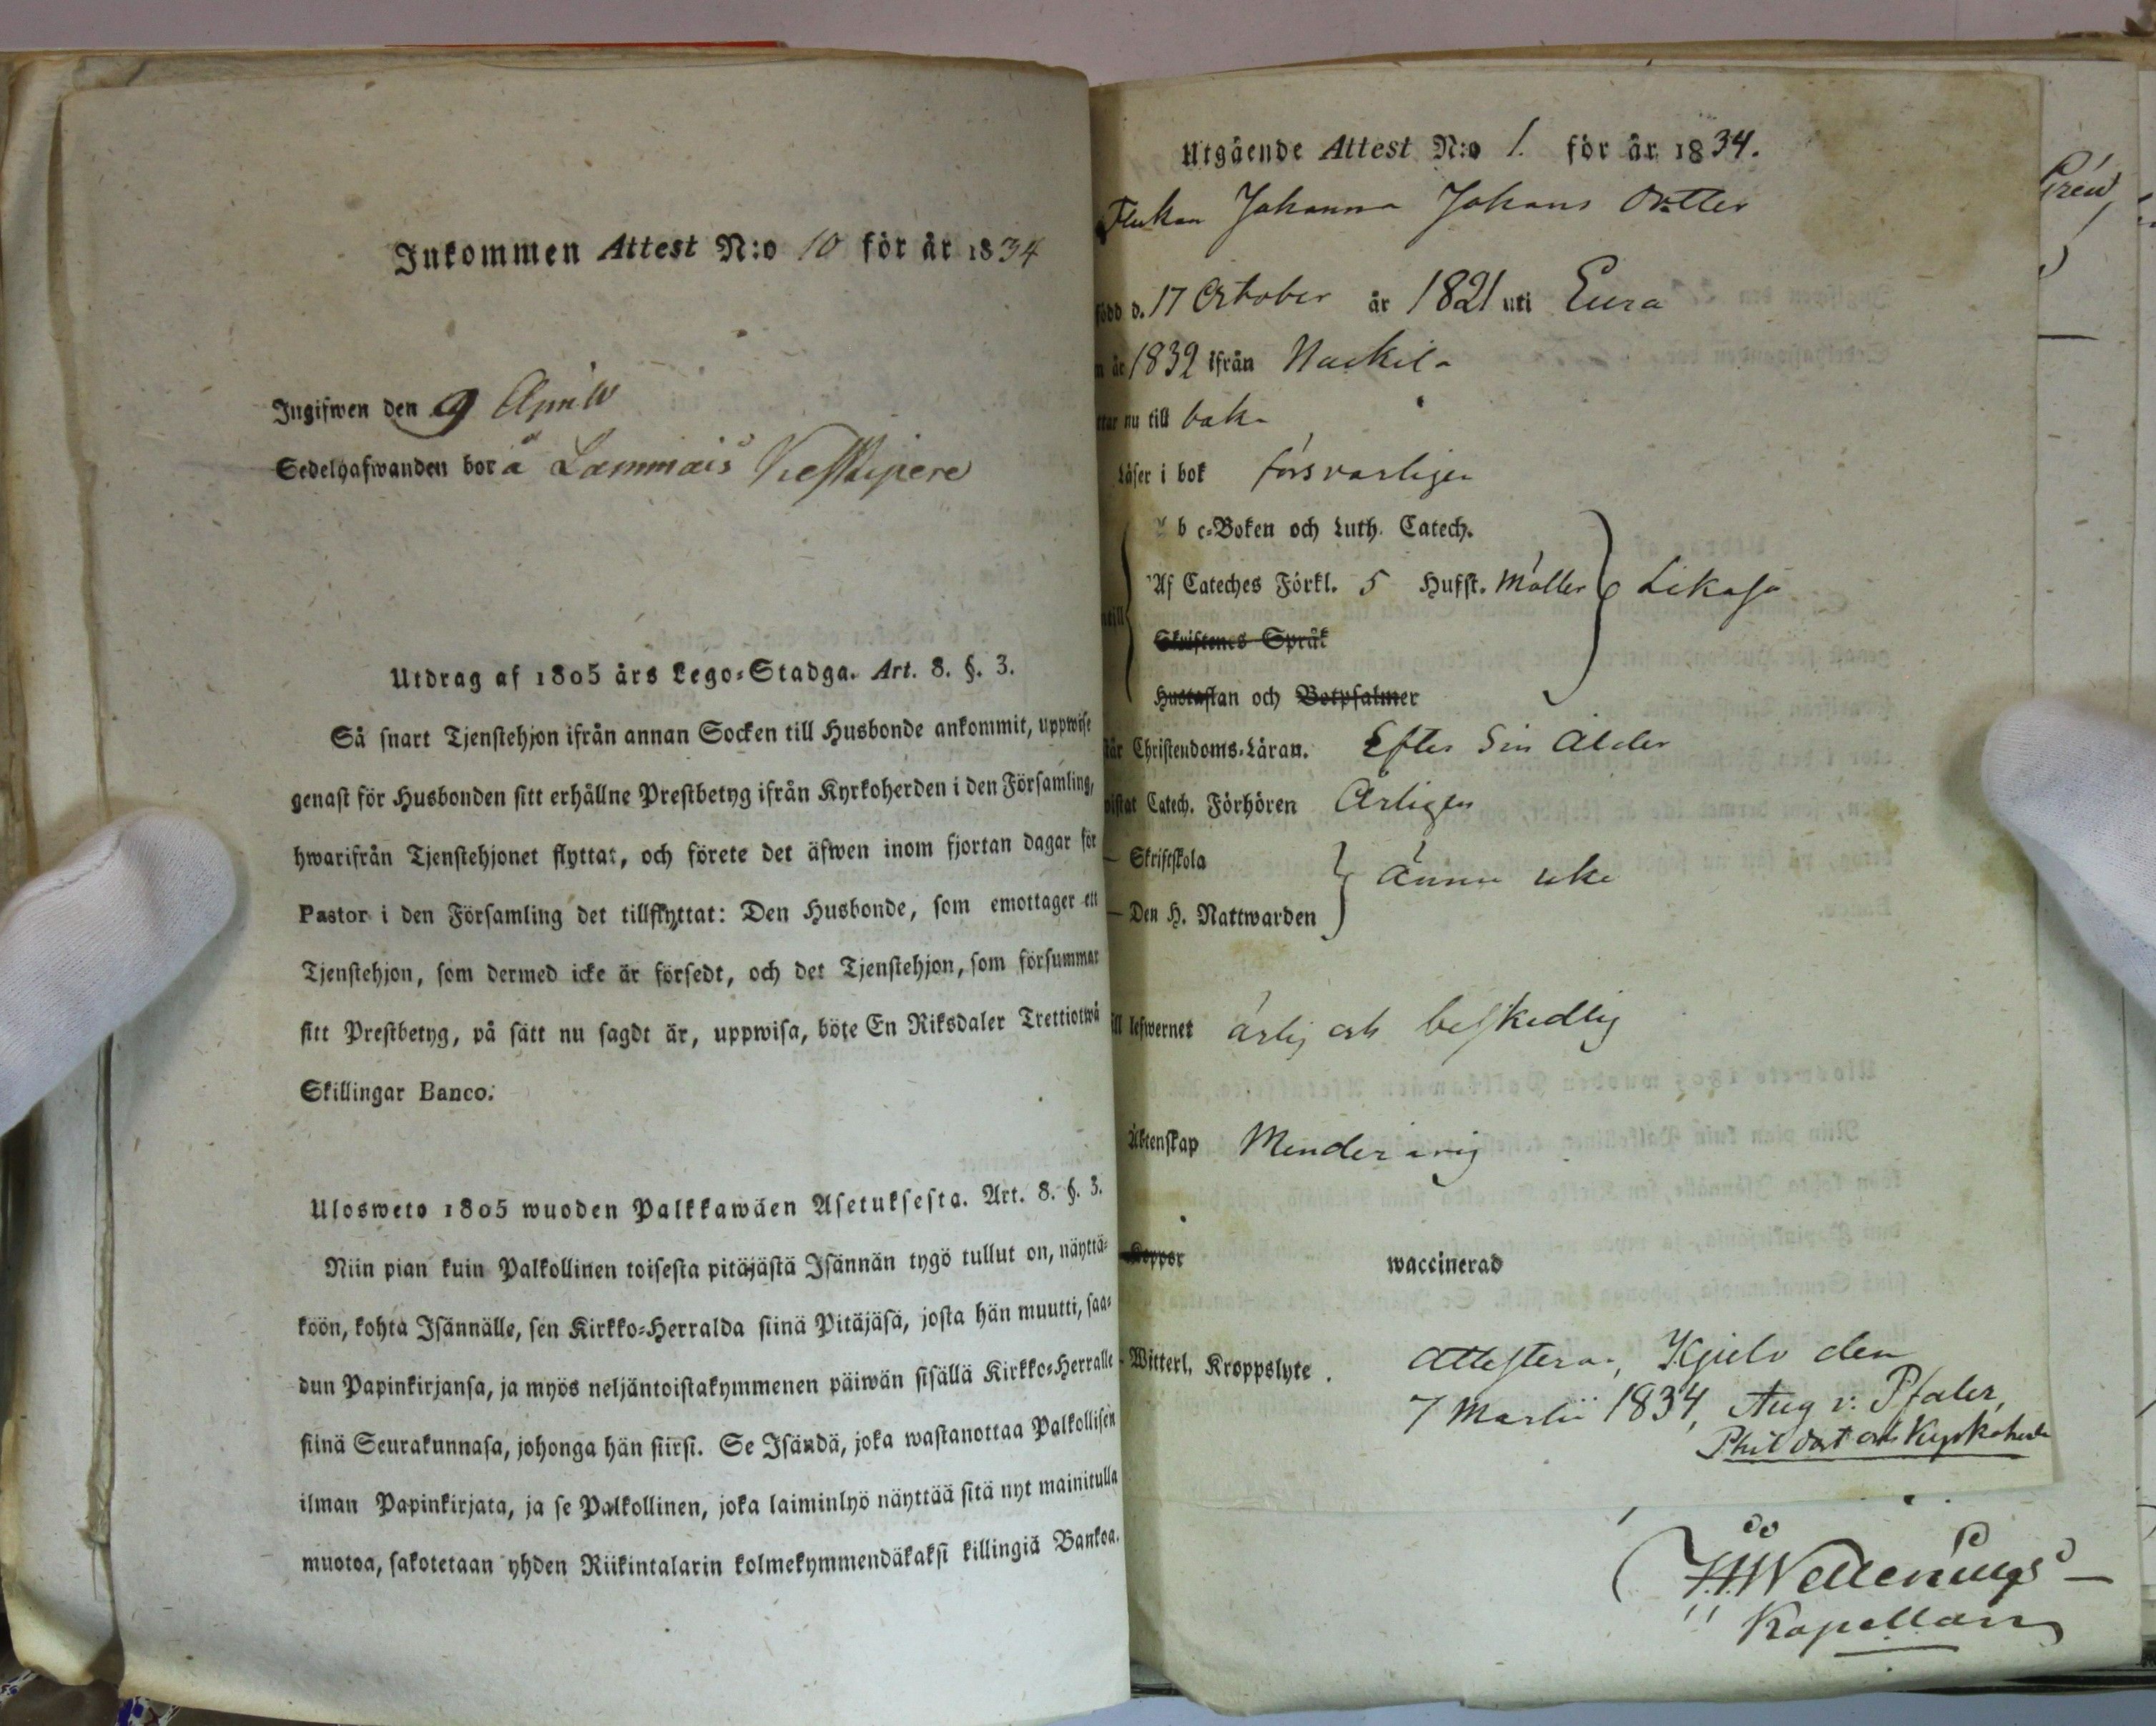 Inkommen Attest N:o 10 för år 1834
Ingifwen den 9 Aprill
Sedelhafwanden bor å Lammais
Utdrag af 1805 års Lego-Stadga. Art. 8. §. 3.
Så snart Tjenstehjon ifrån annan Socken till Husbonde ankommit, uppwise
genast för Husbonden sitt erhållne Prestbetyg ifrån Kyrkoherden i den Församling,
hwarifrån Tjenstehjonet flyttat, och förete det äfwen inom fjortan dagar för
Pastor i den Församling det tillflyttat: Den Husbonde, som emottager ett
Tjenstehjon, som dermed icke är försedt, och det Tjenstehjon, som försummar
sitt Prestbetyg, på sätt nu sagdt är, uppwisa, böte En Riksdaler Trettiotwå
Skillingar Banco.
Ulosweto 1805 wuoden Palkkawäen Asetuksesta. Art. 8. §. 3.
Niin pian kuin Palkollinen toisesta pitäjästä Isännän tygö tullut on, näyttä-
köön, kohta Isännälle, sen Kirkko-Herralda siinä Pitäjäsä, josta hän muutti, saa-
dun Papinkirjansa, ja myös neljäntoistakymmenen päiwän sisällä Kirkko-Herralle
siinä Seurakunnasa, johonga hän siirsi. Se Isändä, joka wastanottaa Palkollisen
ilman Papinkirjata, ja se Palkollinen, joka laiminlyö näyttää sitä nyt mainitulla
muotoa, sakotetaan yhden Riikintalarin kolmekymmendäkaksi killingiä Bankoa.
Utgående Attest N:o 1. för år 1834.
Flickan Johanna Johans Dotter
född d. 17 October år 1821 uti Eura
år 1832 ifrån Nackila
nu till baka
Läser i bok försvarligen
b c-Boken och Luth. Catech.
Af Cateches Förkl. 5 Hufst. Möller Likaså
Skriftenes Språk
Hustaflan och Botpsalmer
Christendoms-Läran. Efter Sin Ålder
Catech. Förhören Årligen
— Skriftskola
ännu icke
— Den H. Nattwarden
till lefwernet ärlig och beskedlig
Äktenskap Minderårig
Koppor waccinerad
- Witterl. Kroppslyte. Attesterar, Kjulo den
7 Martii 1834, Aug v: Pfaler,
Phil. Doct och Kyrkoherde
Kapellan